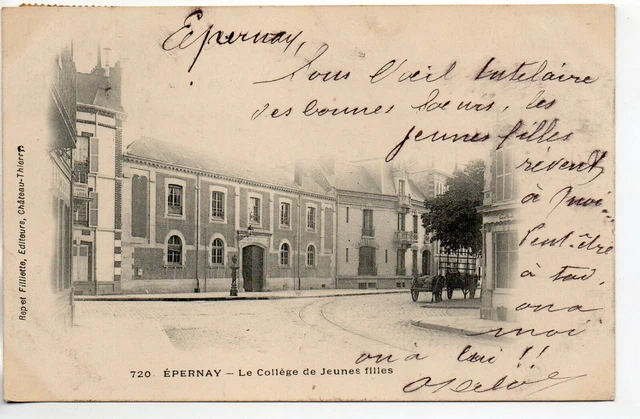 Épernay,
Sous l'œil tutélaire
des bonnes sœurs, les
jeunes filles
rêvent
à quoi..
Peut-être
à toi,
ou à
moi
ou à lui !!
Rep et Filliette, Editeurs, Château-Thierry
720 ÉPERNAY – Le Collège de Jeunes filles